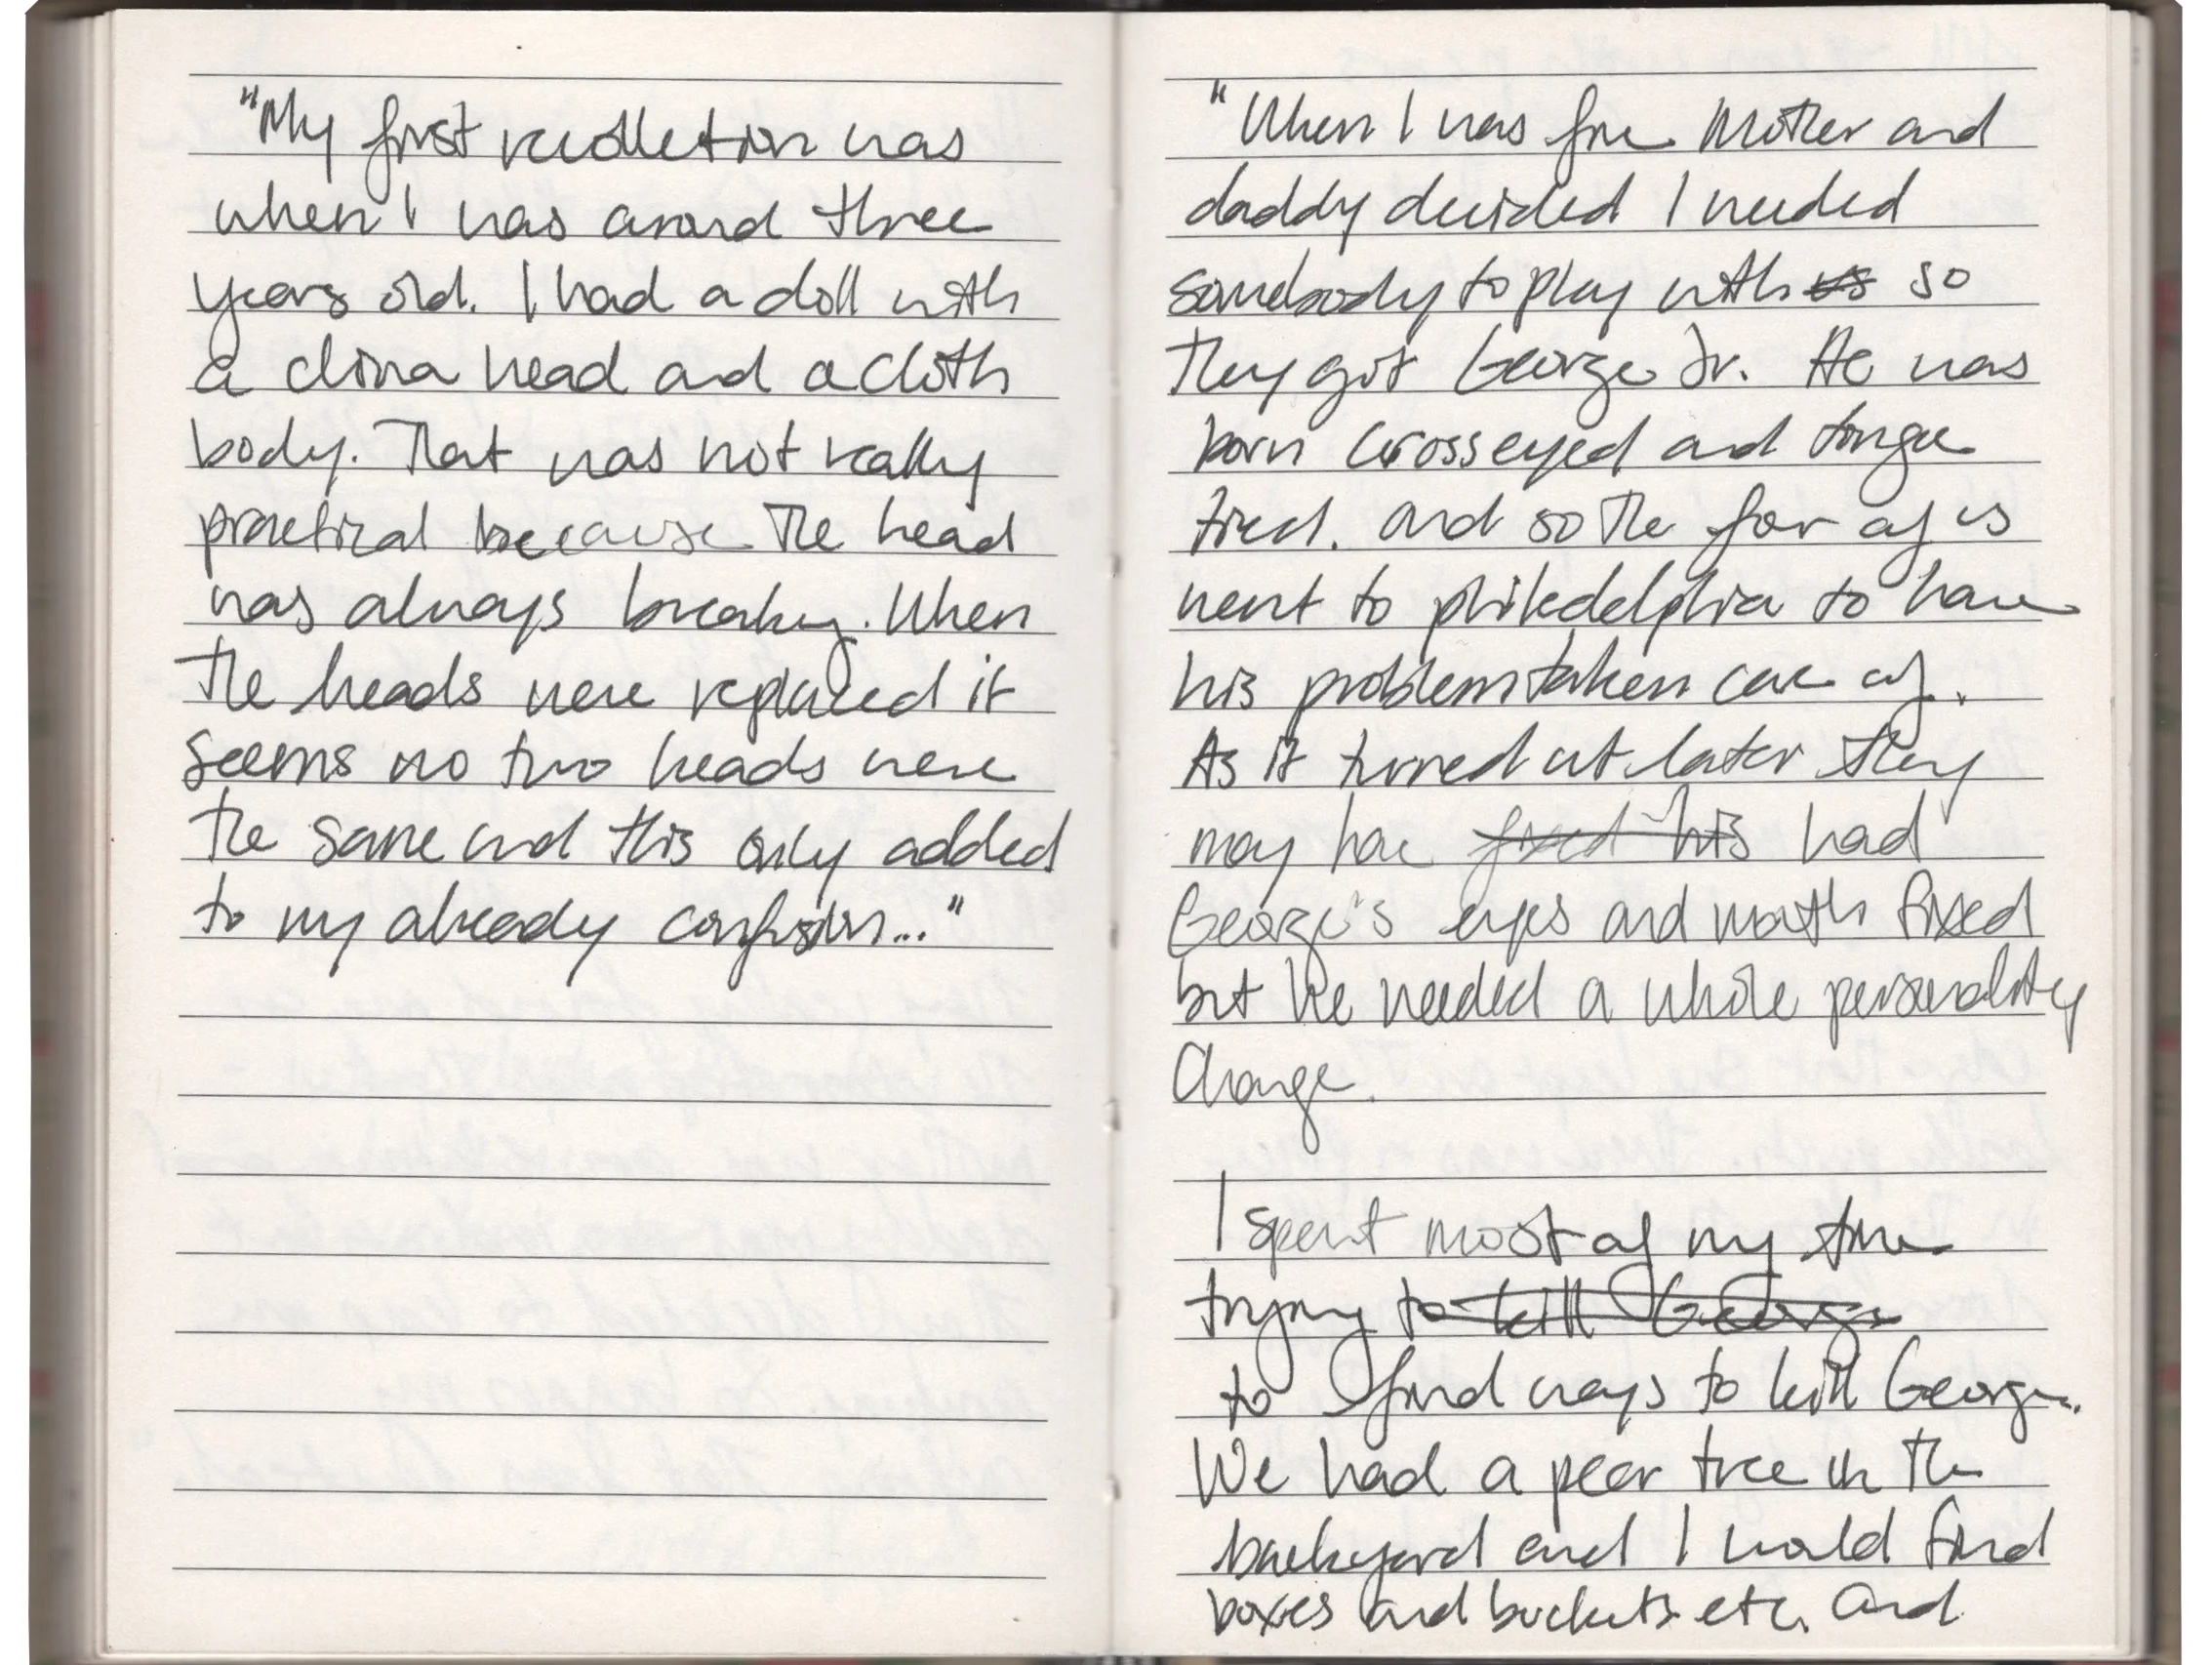 "My first recollection was
when I was around three
years old. I had a doll with
a china head and a cloth
body. That was not really
practical because the head
was always breaking. When
the heads were replaced it
seems no two heads were
the same and this only added
to my already confusion..."
"When I was five Mother and
daddy decided I needed
somebody to play with us so
they got George Jr. He was
born crosseyed and tongue
tied. and so the four of us
went to philidelphia to have
his problem taken care of.
As it turned out later they
may have fixed his had
George's eyes and mouth fixed
but he needed a whole personality
change.
I spent most of my time
trying to kill George
to find ways to kill George.
We had a pear tree in the
backyard and I would find
boxes and buckets etc. and